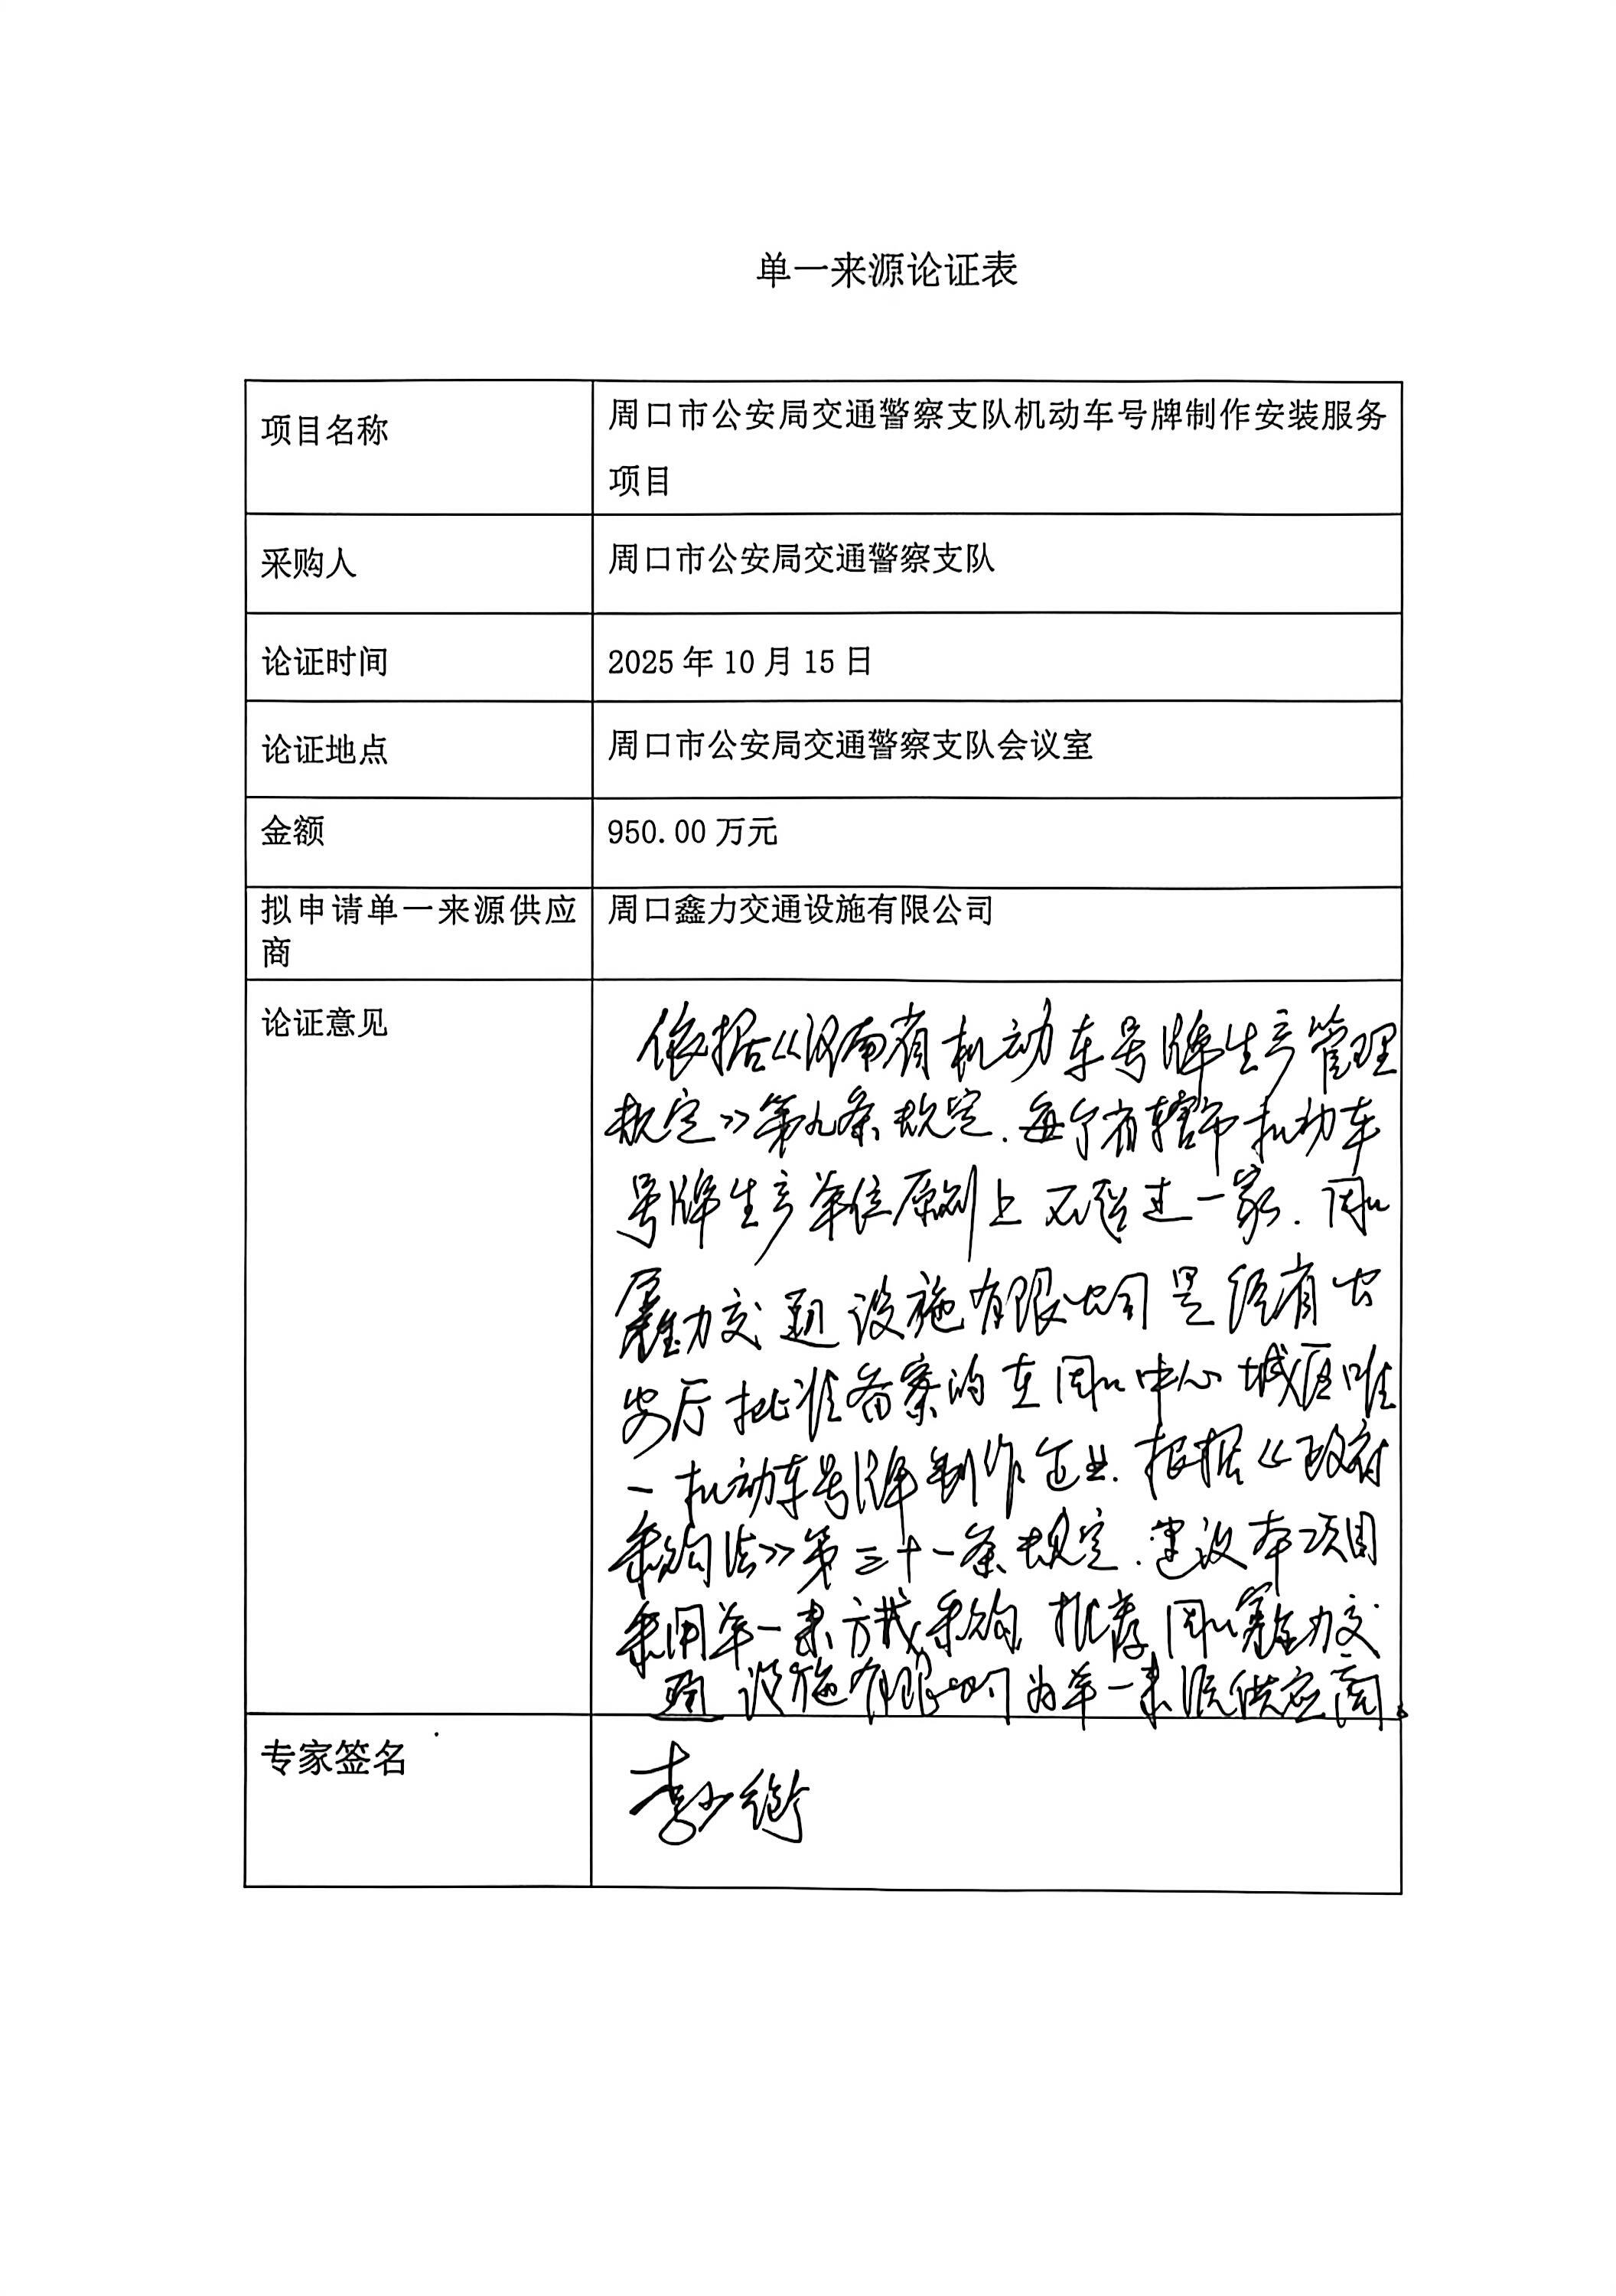 单一来源论证表
项目名称
周口市公安局交通警察支队机动车号牌制作安装服务
项目
采购人
周口市公安局交通警察支队
论证时间
2025年10月15日
论证地点
周口市公安局交通警察支队会议室
金额
950.00万元
拟申请单一来源供应
商
周口鑫力交通设施有限公司
论证意见
依据《河南省机动车号牌生产管理
规定》第九条规定.每个省辖市机动车
号牌生产单位原则上不超过一家.周口
鑫力交通设施有限公司是经省公
安厅批准备案的在周口中心城区唯
一机动车号牌制作企业.根据《政府
采购法》第三十一条规定.建议本项目
采用单一来方式采购.推荐周口鑫力交
通设施有限公司为单一来源供应商。
专家签名
李少